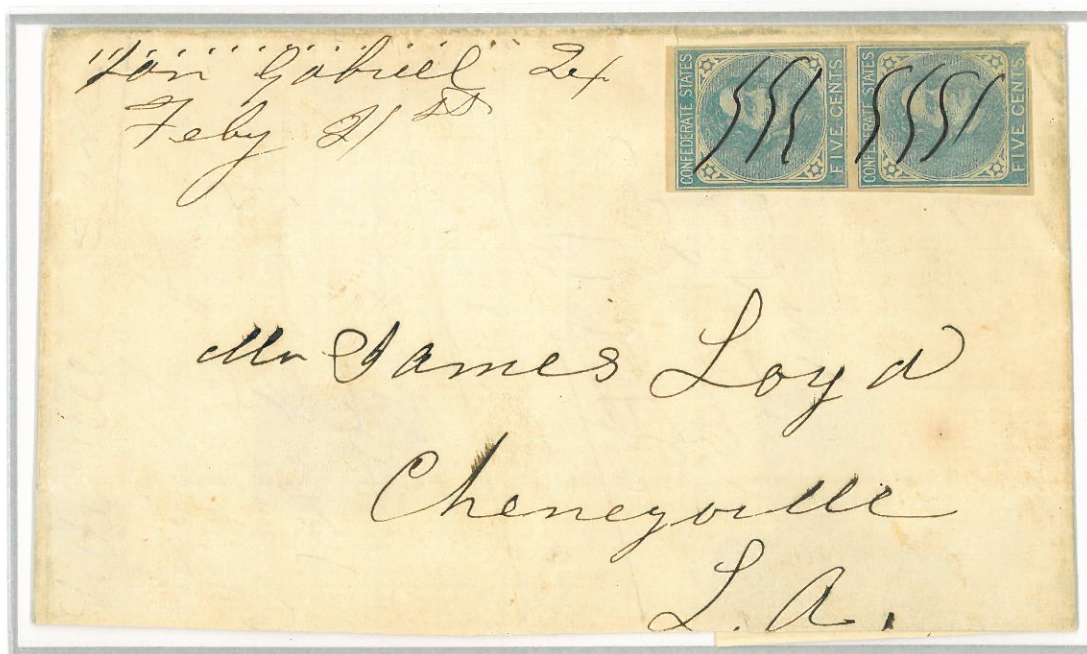 San Gabriel Tx
Feby 21st
CONFEDERATE STATES
FIVE CENTS
CONFEDERATE STATES
FIVE CENTS
Mr James Loyd
Cheneyville
L.A.